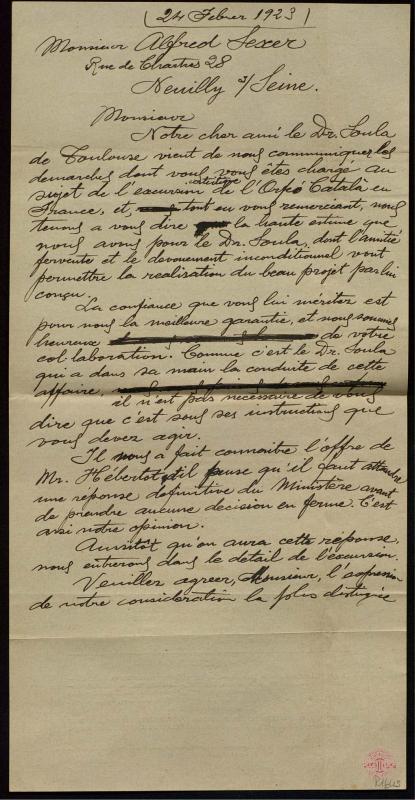 (24 Febrer 1923)
Monsieur Alfred Sexer
Rue de Chartres 28
Neuilly s/ Seine.
Monsieur
Notre cher ami le Dr. Soula
de Toulouse vient de nous communiquer les
demarches dont vous vous êtes chargé au
artistique
sujet de l'excursion de l'Orfeó Català en
France, et, tout en vous remerciant, nous
tenons a vous dire la haute estime que
nous avons pour le Dr. Soula, dont l'amitié
fervente et le devouement inconditionnel vont
permettre la realisation du beau projet par lui
conçu.
La confiance que vous lui meritez est
pour nous la meilleure garantie, et nous sommes
heureux de votre
col·laboration. Comme c'est le Dr. Soula
qui a dans sa main la conduite de cette
affaire,
il n'est pas nécessaire de vous
dire que c'est sous ses instructions que
vous devez agir.
Il nous a fait connaitre l'offre de
Mr. Hébertot, il pense qu'il faut attendre
une réponse définitive du Ministère avant
de prendre aucune decision en ferme. C'est
ausi notre opinion.
Aussitôt qu'on aura cette réponse,
nous entrerons dans le detail de l'excursion.
Veuillez agreer, Monsieur, l'expression
de notre consideration la plus distinguée